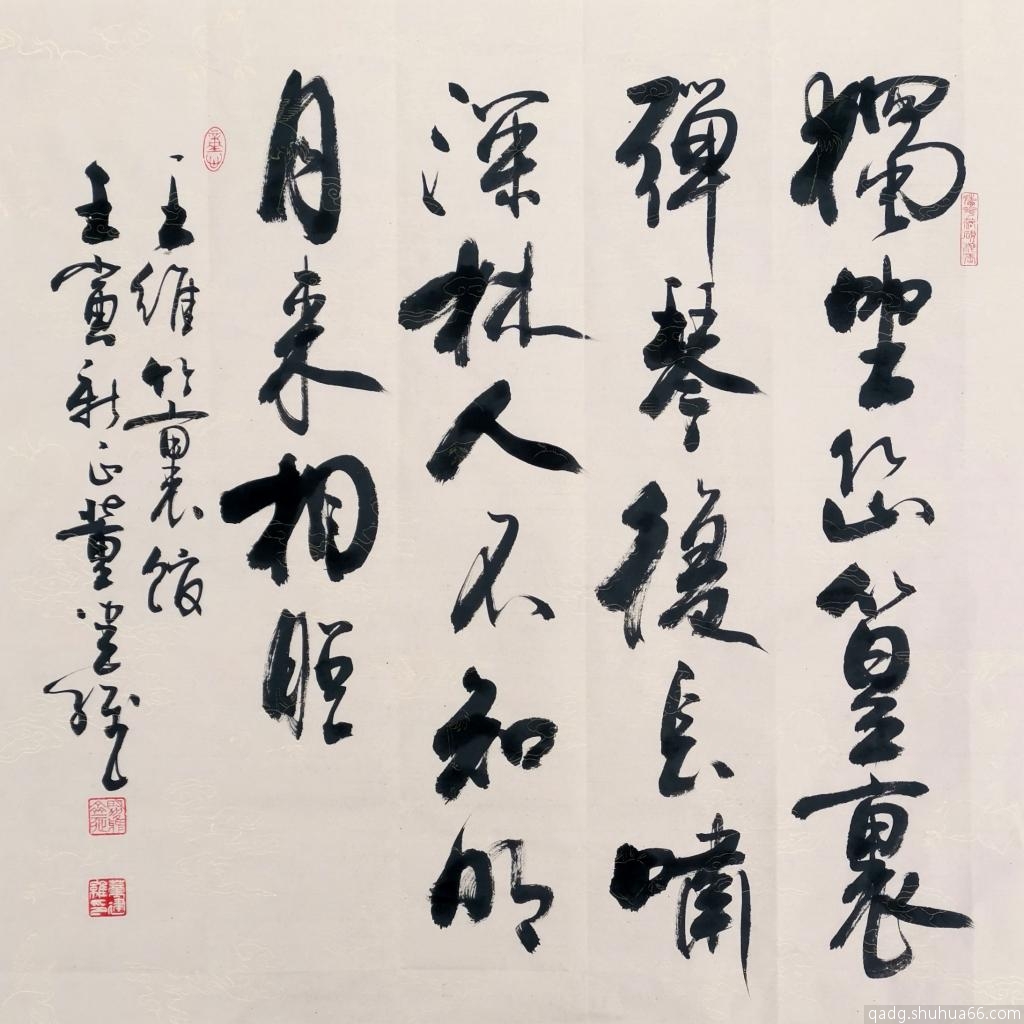 獨坐幽篁裏
彈琴復長嘯
深林人不知明
月來相照
王維竹裏館
壬寅新正董
qadg.shuhua66.com